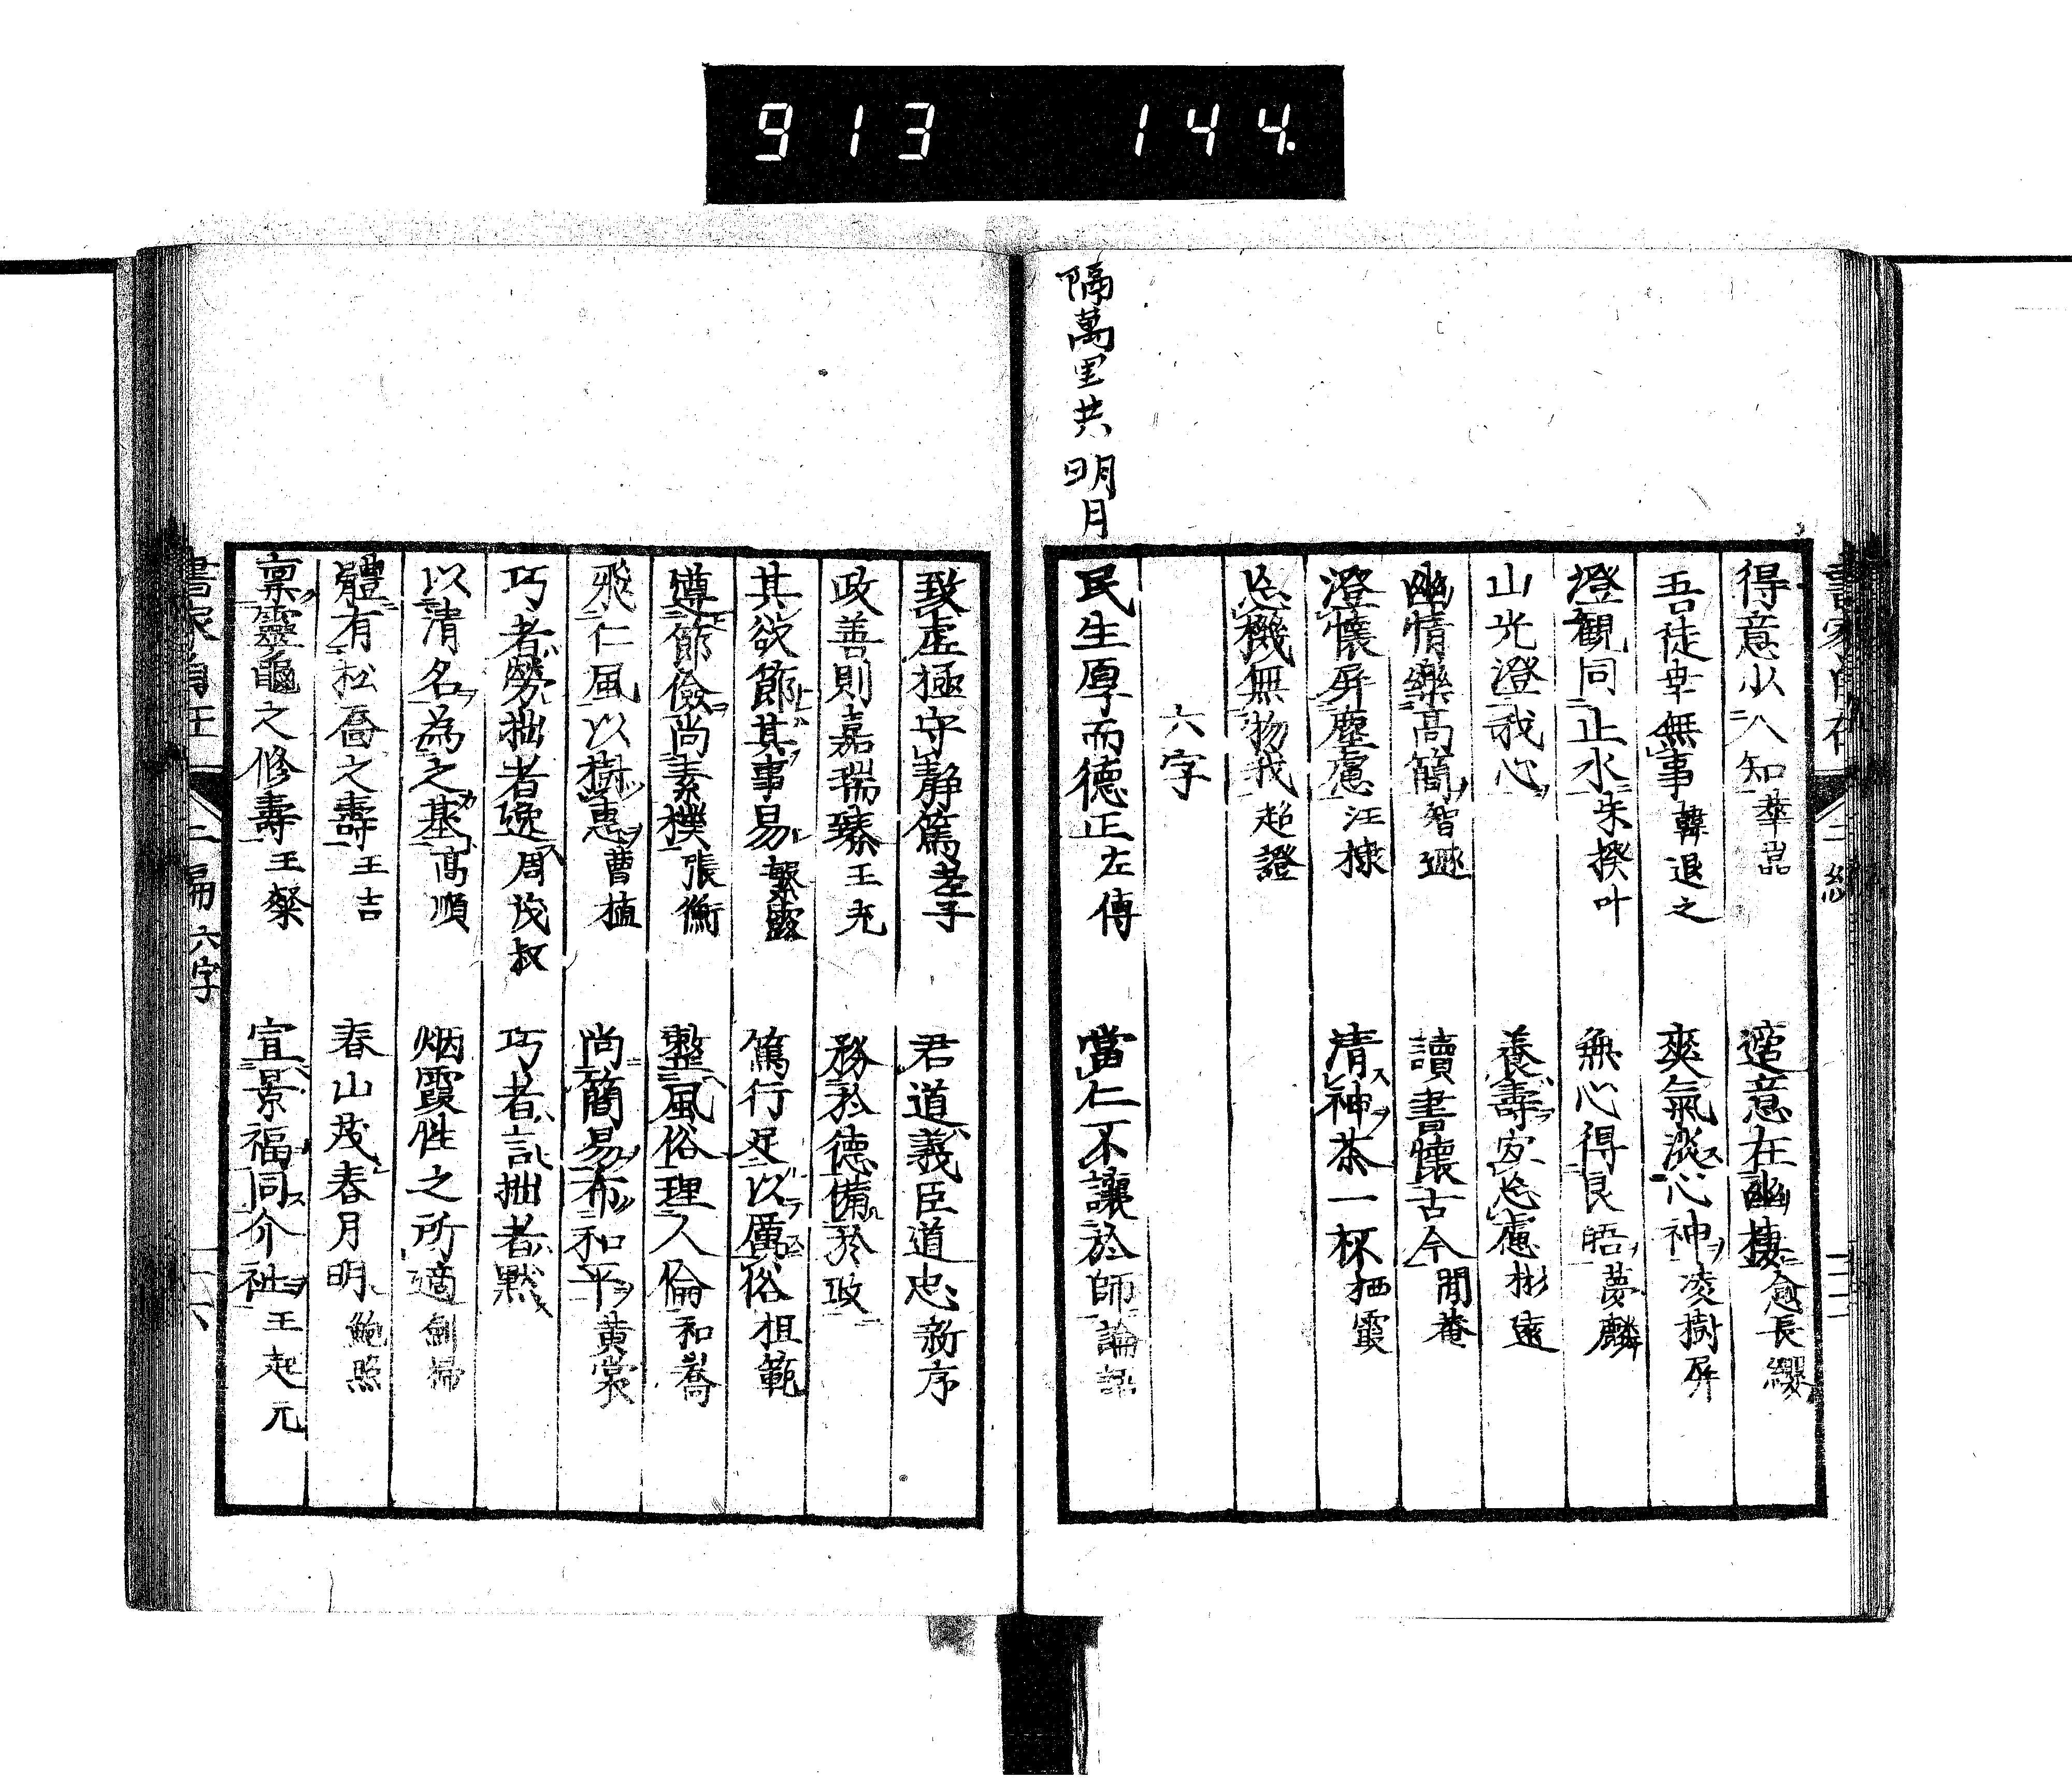 913 144.
隔萬里共明月
得意少人知 華嵒 適意在幽棲 俞長纓
吾徒幸無事 韓退之 爽氣淡心神 凌樹屏
澄觀同止水 朱揆叶 無心得良晤 夢麟
山光澄我心 養壽宜忘慮 彬遠
幽情樂高簡 智遯 讀書懷古今 閒菴
澄懷屏塵慮 汪棣 清神茶一杯 栖霞
忘機無物我 超證
六字
民生厚而德正 左傳 當仁不讓於師 論語
致虛極守靜篤 老子 君道義臣道忠 新序
政善則嘉瑞臻 王充 務於德備於政
其欲節其事易 繁露 篤行足以厲俗 祖範
遵節儉尚素樸 張衡 整風俗理人倫 和嶠
飛仁風以樹惠 曹植 尚簡易布和平 黃裳
巧者勞拙者逸 周茂叔 巧者言拙者默
以清名為之基 高順 烟霞性之所適 劍掃
體有松喬之壽 王吉 春山茂春月明 鮑照
稟靈龜之修壽 王粲 宜景福同介祉 王起元
二編 六字